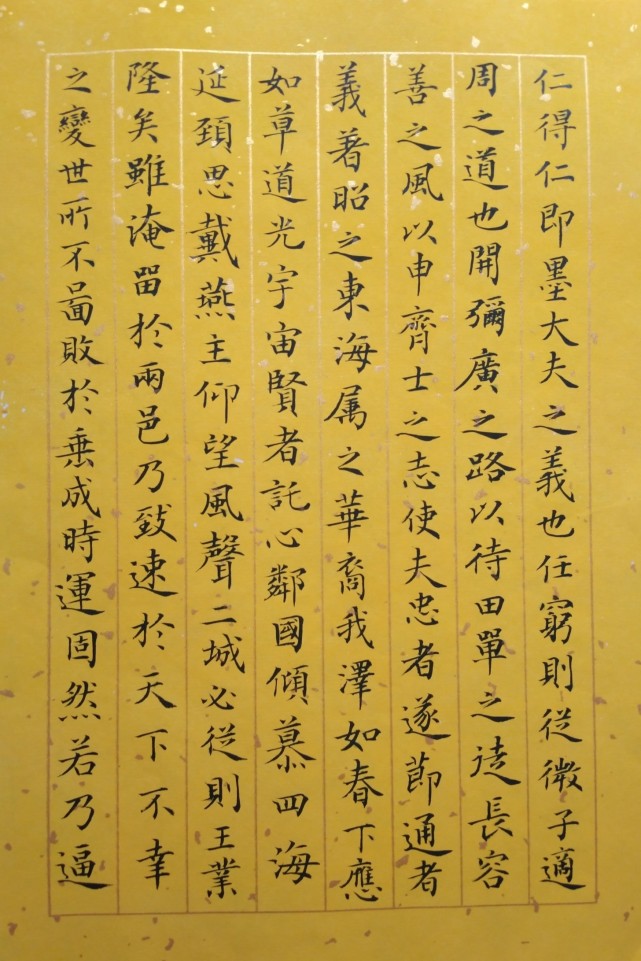 仁得仁即墨大夫之義也任窮則從微子適
周之道也開彌廣之路以待田單之徒長容
善之風以申齊士之志使夫忠者遂節通者
義著昭之東海属之華裔我澤如春下應
如草道光宇宙賢者託心鄰國傾慕四海
延頸思戴燕主仰望風聲二城必從則王業
隆矣雖淹畱於兩邑乃致速於天下不幸
之變世所不啚敗於垂成時運固然若乃逼